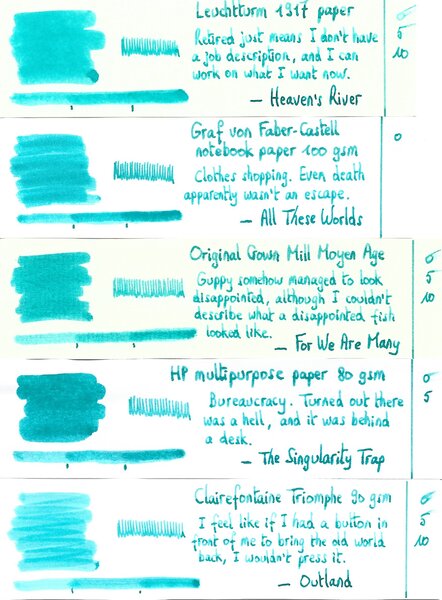 Leuchtturm 1917 paper
Retired just means I don't have
a job description, and I can
work on what I want now.
— Heaven's River
0
5
10
Graf von Faber-Castell
notebook paper 100 gsm
Clothes shopping. Even death
apparently wasn't an escape.
— All These Worlds
0
Original Crown Mill Moyen Age
Guppy somehow managed to look
disappointed, although I couldn't
describe what a disappointed fish
looked like.
— For We Are Many
0
5
10
HP multipurpose paper 80 gsm
Bureaucracy. Turned out there
was a hell, and it was behind
a desk.
— The Singularity Trap
0
5
Clairefontaine Triomphe 90 gsm
I feel like if I had a button in
front of me to bring the old world
back, I wouldn't press it.
— Outland
0
5
10